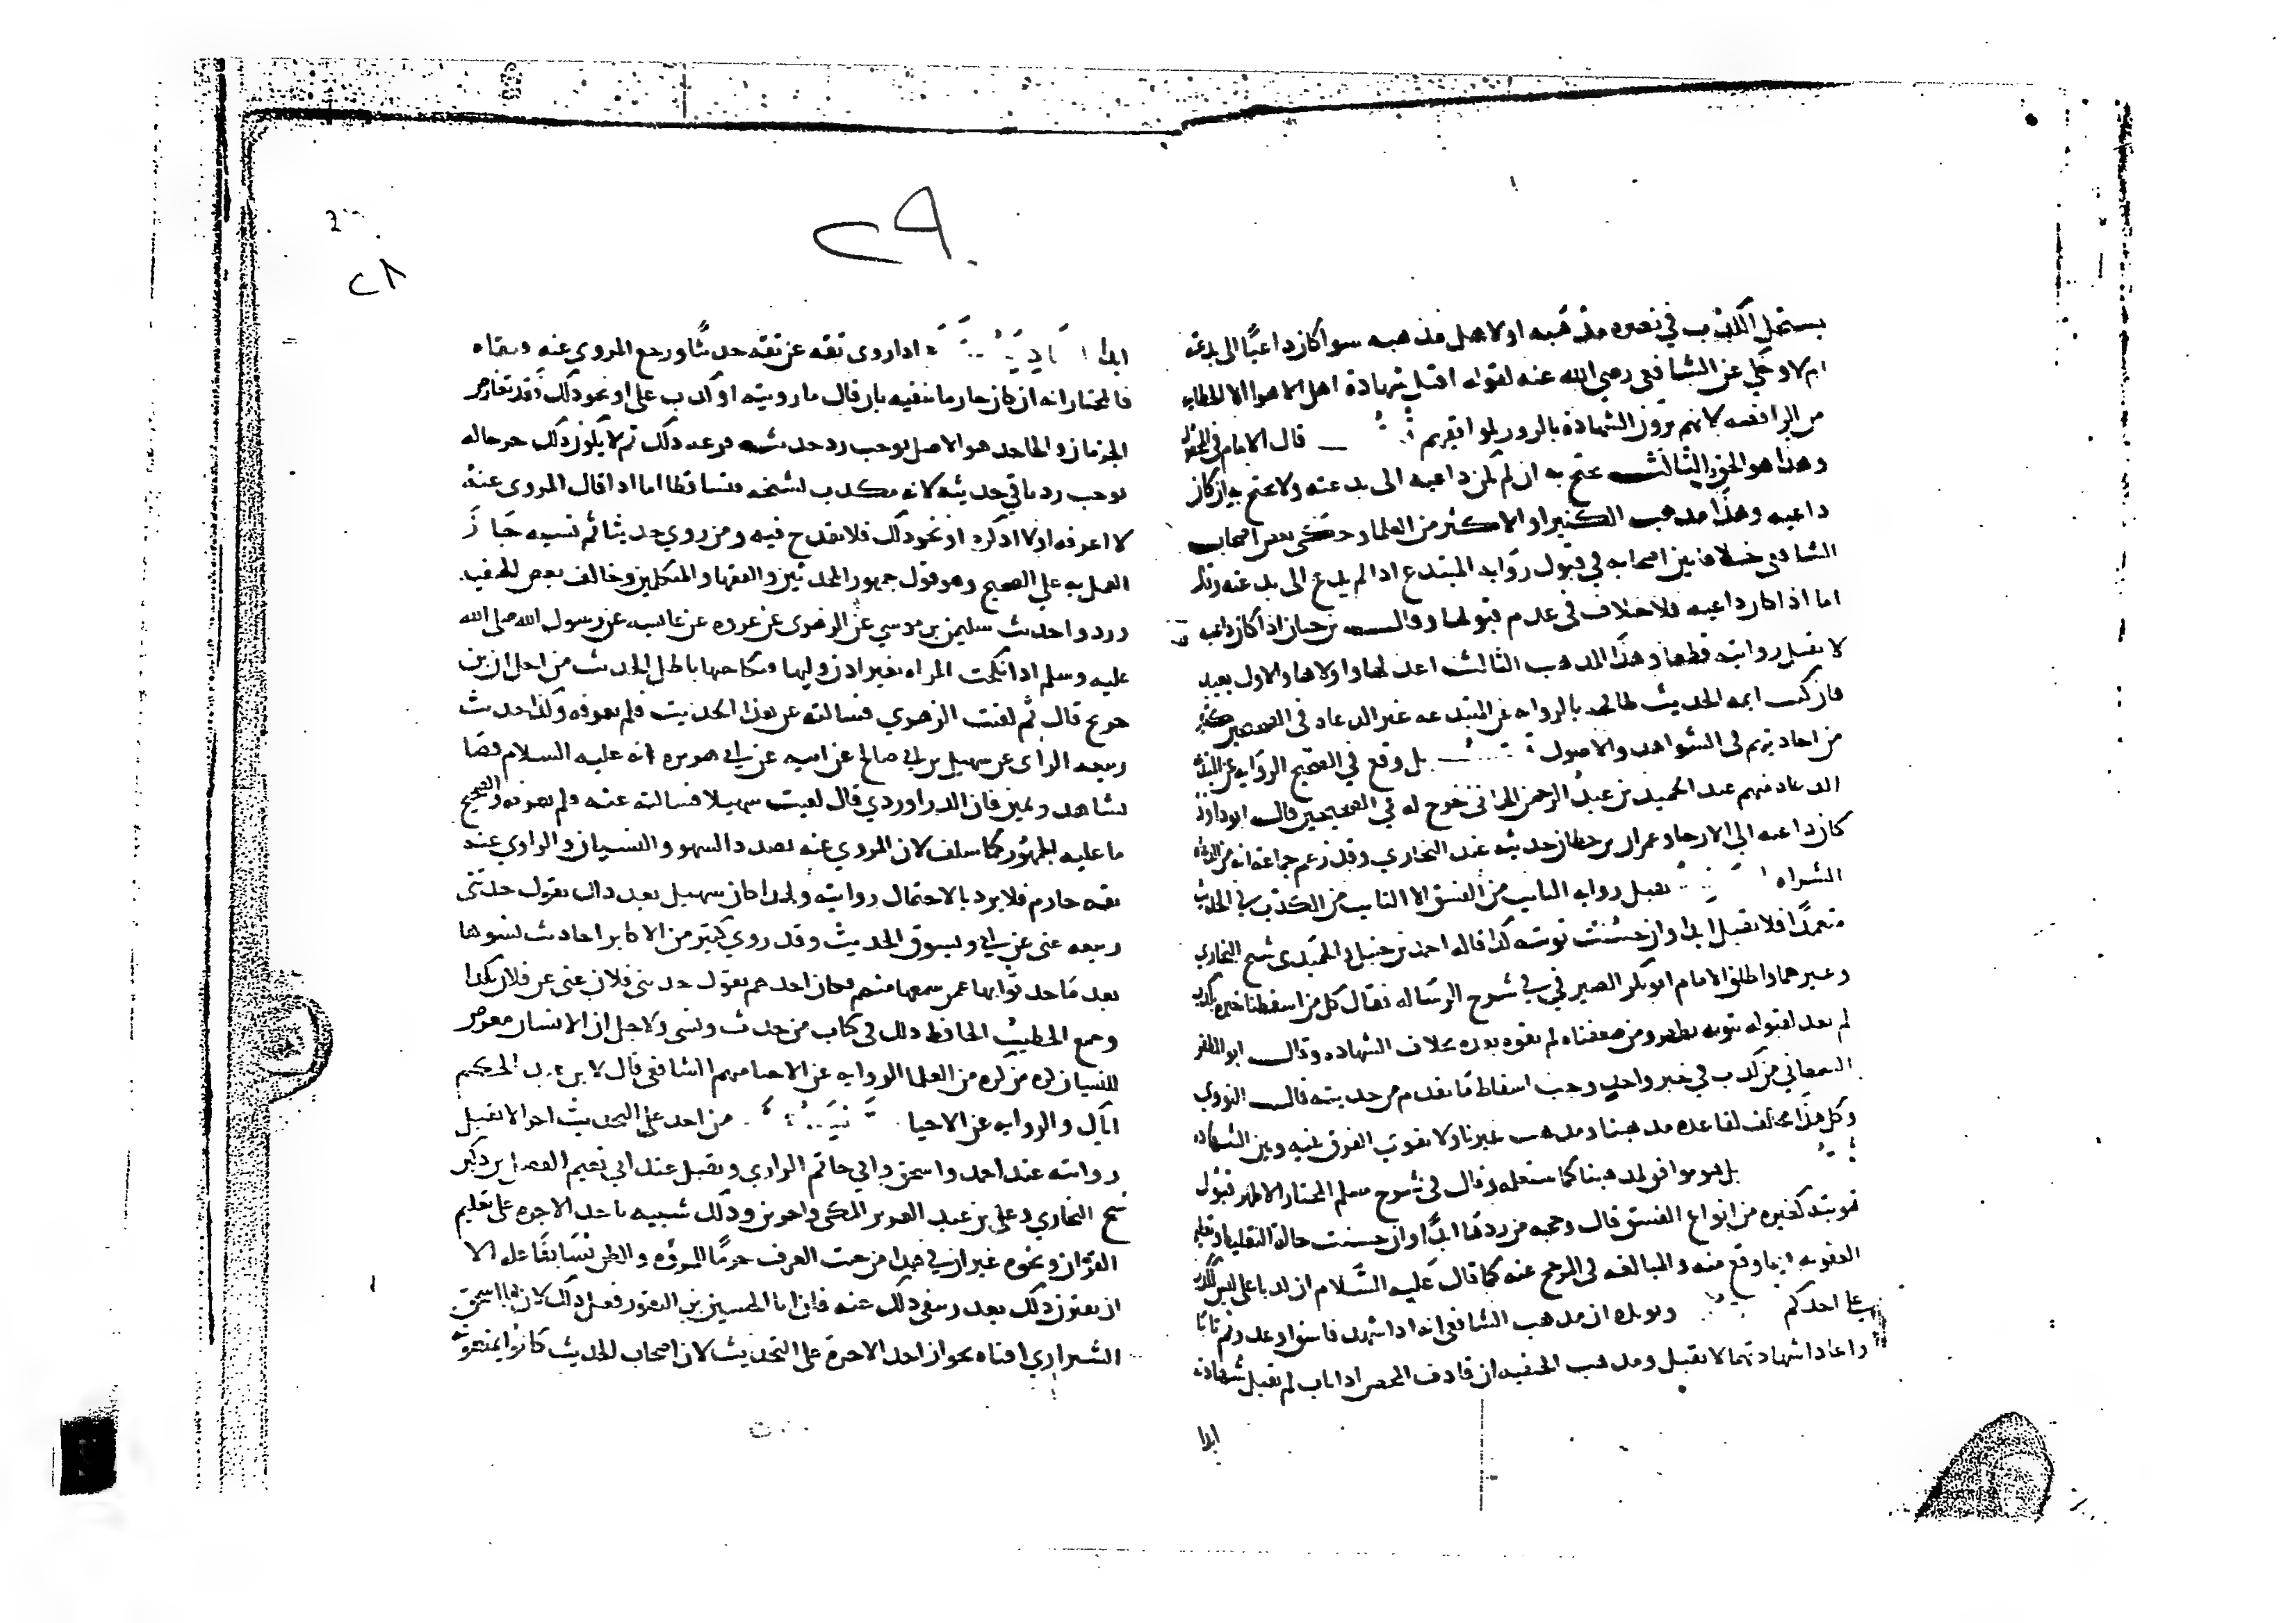 ٢٩
٢٨
يستحل الكذب في نصره مذهبه او لاهل مذهبه سوا كان داعيا الى بدعته
ام لا وحكي عن الشافعي رضي الله عنه لقوله اقبل شهادة اهل الاهوا الا الخطابيه
من الرافضه لانهم يرون الشهادة بالزور لموافقيهم قال الامام في
وهذا هو الحق الثالث يحتج به ان لم يكن داعيه الى بدعته ولا يحتج به ان كان
داعيه وهذا مذهب الكثير او الاكثر من العلما وحكى بعض اصحاب
الشافعي خلافا بين اصحابه في قبول رواية المبتدع اذا لم يدع الى بدعته
اما اذا كان داعيه فلا خلاف في عدم قبولها وقال بن حبان اذا كان داعيه
لا تقبل روايته قطعا وهذا المذهب الثالث اعدلها واولاها والاول بعيد
فان كتب ايمه الحديث طافحه بالروايه عن المبتدعه غير الدعاه في الصحيحين كثير
من احاديثهم في الشواهد والاصول بل وقع في الصحيح الروايه عن
الدعاه منهم عبد الحميد بن عبد الرحمن الحماني خرج له في الصحيحين قال ابو داود
كان داعيه الى الارجا وعمران بن حطان حديثه عند البخاري وقد زعم جماعة انه من الدعاه
الشراه تقبل روايه التايب من الفسق الا التايب من الكذب في الحديث
متعمدا فلا تقبل ابدا وان حسنت توبته كذا قاله احمد بن حنبل والحميدي شيخ البخاري
وغيرهما واطلق الامام ابو بكر الصيرفي في شرح الرساله فقال كل من اسقطنا خبره بكذب
لم نعد لقبوله بتوبه تظهر ومن ضعفناه لم نقوه بعده بخلاف الشهاده وقال ابو المظفر
السمعاني من كذب في خبر واحد وجب اسقاط ما تقدم من حديثه قال النووي
وكل هذا مخالف لقاعده مذهبنا ومذهب غيرنا ولا نقوي الفرق بينه وبين الشهاده
بل هو موافق لمذهبنا كما ستعلمه وقال في شرح مسلم المختار الاظهر قبول
توبته كغيره من انواع الفسق قال وحجه من ردها ابدا وان حسنت حاله التغليظ وتعظيم
العقوبه فيما وقع منه والمبالغه في الزجر عنه كما قال عليه السلام ان كذبا علي ليس ككذب
على احدكم ويويده ان مذهب الشافعي انه اذا شهد فاسق او عدو ثم تابا
واعادا شهادتهما لا تقبل ومذهب الحنفيه ان قاذف المحصن اذا تاب لم تقبل شهادته
ابدا
ابدا اذا روى ثقه عن ثقه حديثا ورجع المروي عنه ونفاه
فالمختار انه ان كان جازما بنفيه بان قال ما رويته او كذب علي او نحو ذلك فقد تعارض
الجزمان والجاحد هو الاصل فوجب رد حديث فرعه ذلك ثم لا يكون ذلك جرحا له
يوجب رد باقي حديثه لانه مكذب لشيخه فتساقطا اما اذا قال المروي عنه
لا اعرفه او لا اذكره او نحو ذلك فلا يقدح فيه ومن روي حديثا ثم نسيه جاز
العمل به علي الصحيح وهو قول جمهور المحدثين والفقها والمتكلمين وخالف بعض الحنفيه
وردوا حديث سليمن بن موسي عن الزهري عن عروه عن عايشه عن رسول الله صلى الله
عليه وسلم اذا نكحت المراه بغير اذن وليها فنكاحها باطل الحديث من اجل ان بن
جريج قال ثم لقيت الزهري فسالته عن هذا الحديث فلم يعرفه وكذا حديث
ربيعه الراى عن سهيل بن ابي صالح عن ابيه عن ابي هريره انه عليه السلام قضا
بشاهد ويمين فان الدراوردي قال لقيت سهيلا فسالته عنه فلم يعرفه والصحيح
ما عليه الجمهور كما سلف لان المروي عنه بصدد السهو والنسيان والراوي عنه
ثقه جازم فلا يرد بالاحتمال روايته ولهذا كان سهيل بعد ذلك يقول حدثني
ربيعه عني عن ابي ويسوق الحديث وقد روي كثير من الاكابر احاديث نسوها
بعد ما حدثوا بها عمن سمعها منهم فكان احدهم يقول حدثني فلان عني عن فلان بكذا
وجمع الخطيب الحافظ ذلك في كتاب من حدث ونسي ولاجل ان الانسان معرض
للنسيان كره من كره من العلما الروايه عن الاحيا منهم الشافعي قال لابن عبد الحكم
اياك والروايه عن الاحيا من اخذ على التحديث اجرا لا تقبل
روايته عند احمد واسحق وابي حاتم الرازي وتقبل عند ابي نعيم الفضل بن دكين
شيخ البخاري وعلي بن عبد العزيز المكي واخرين وذلك شبيه باخذ الاجره على تعليم
القران ونحوه غير ان في هذا من حيث العرف خرما للمروه والظن يسا بفاعله الا
ان يقترن ذلك بعذر ينفي ذلك عنه فان ابا الحسين بن النقور فعل ذلك لان ابا اسحق
الشيرازي افتاه بجواز اخذ الاجرة على التحديث لان اصحاب الحديث كانوا يمنعونه